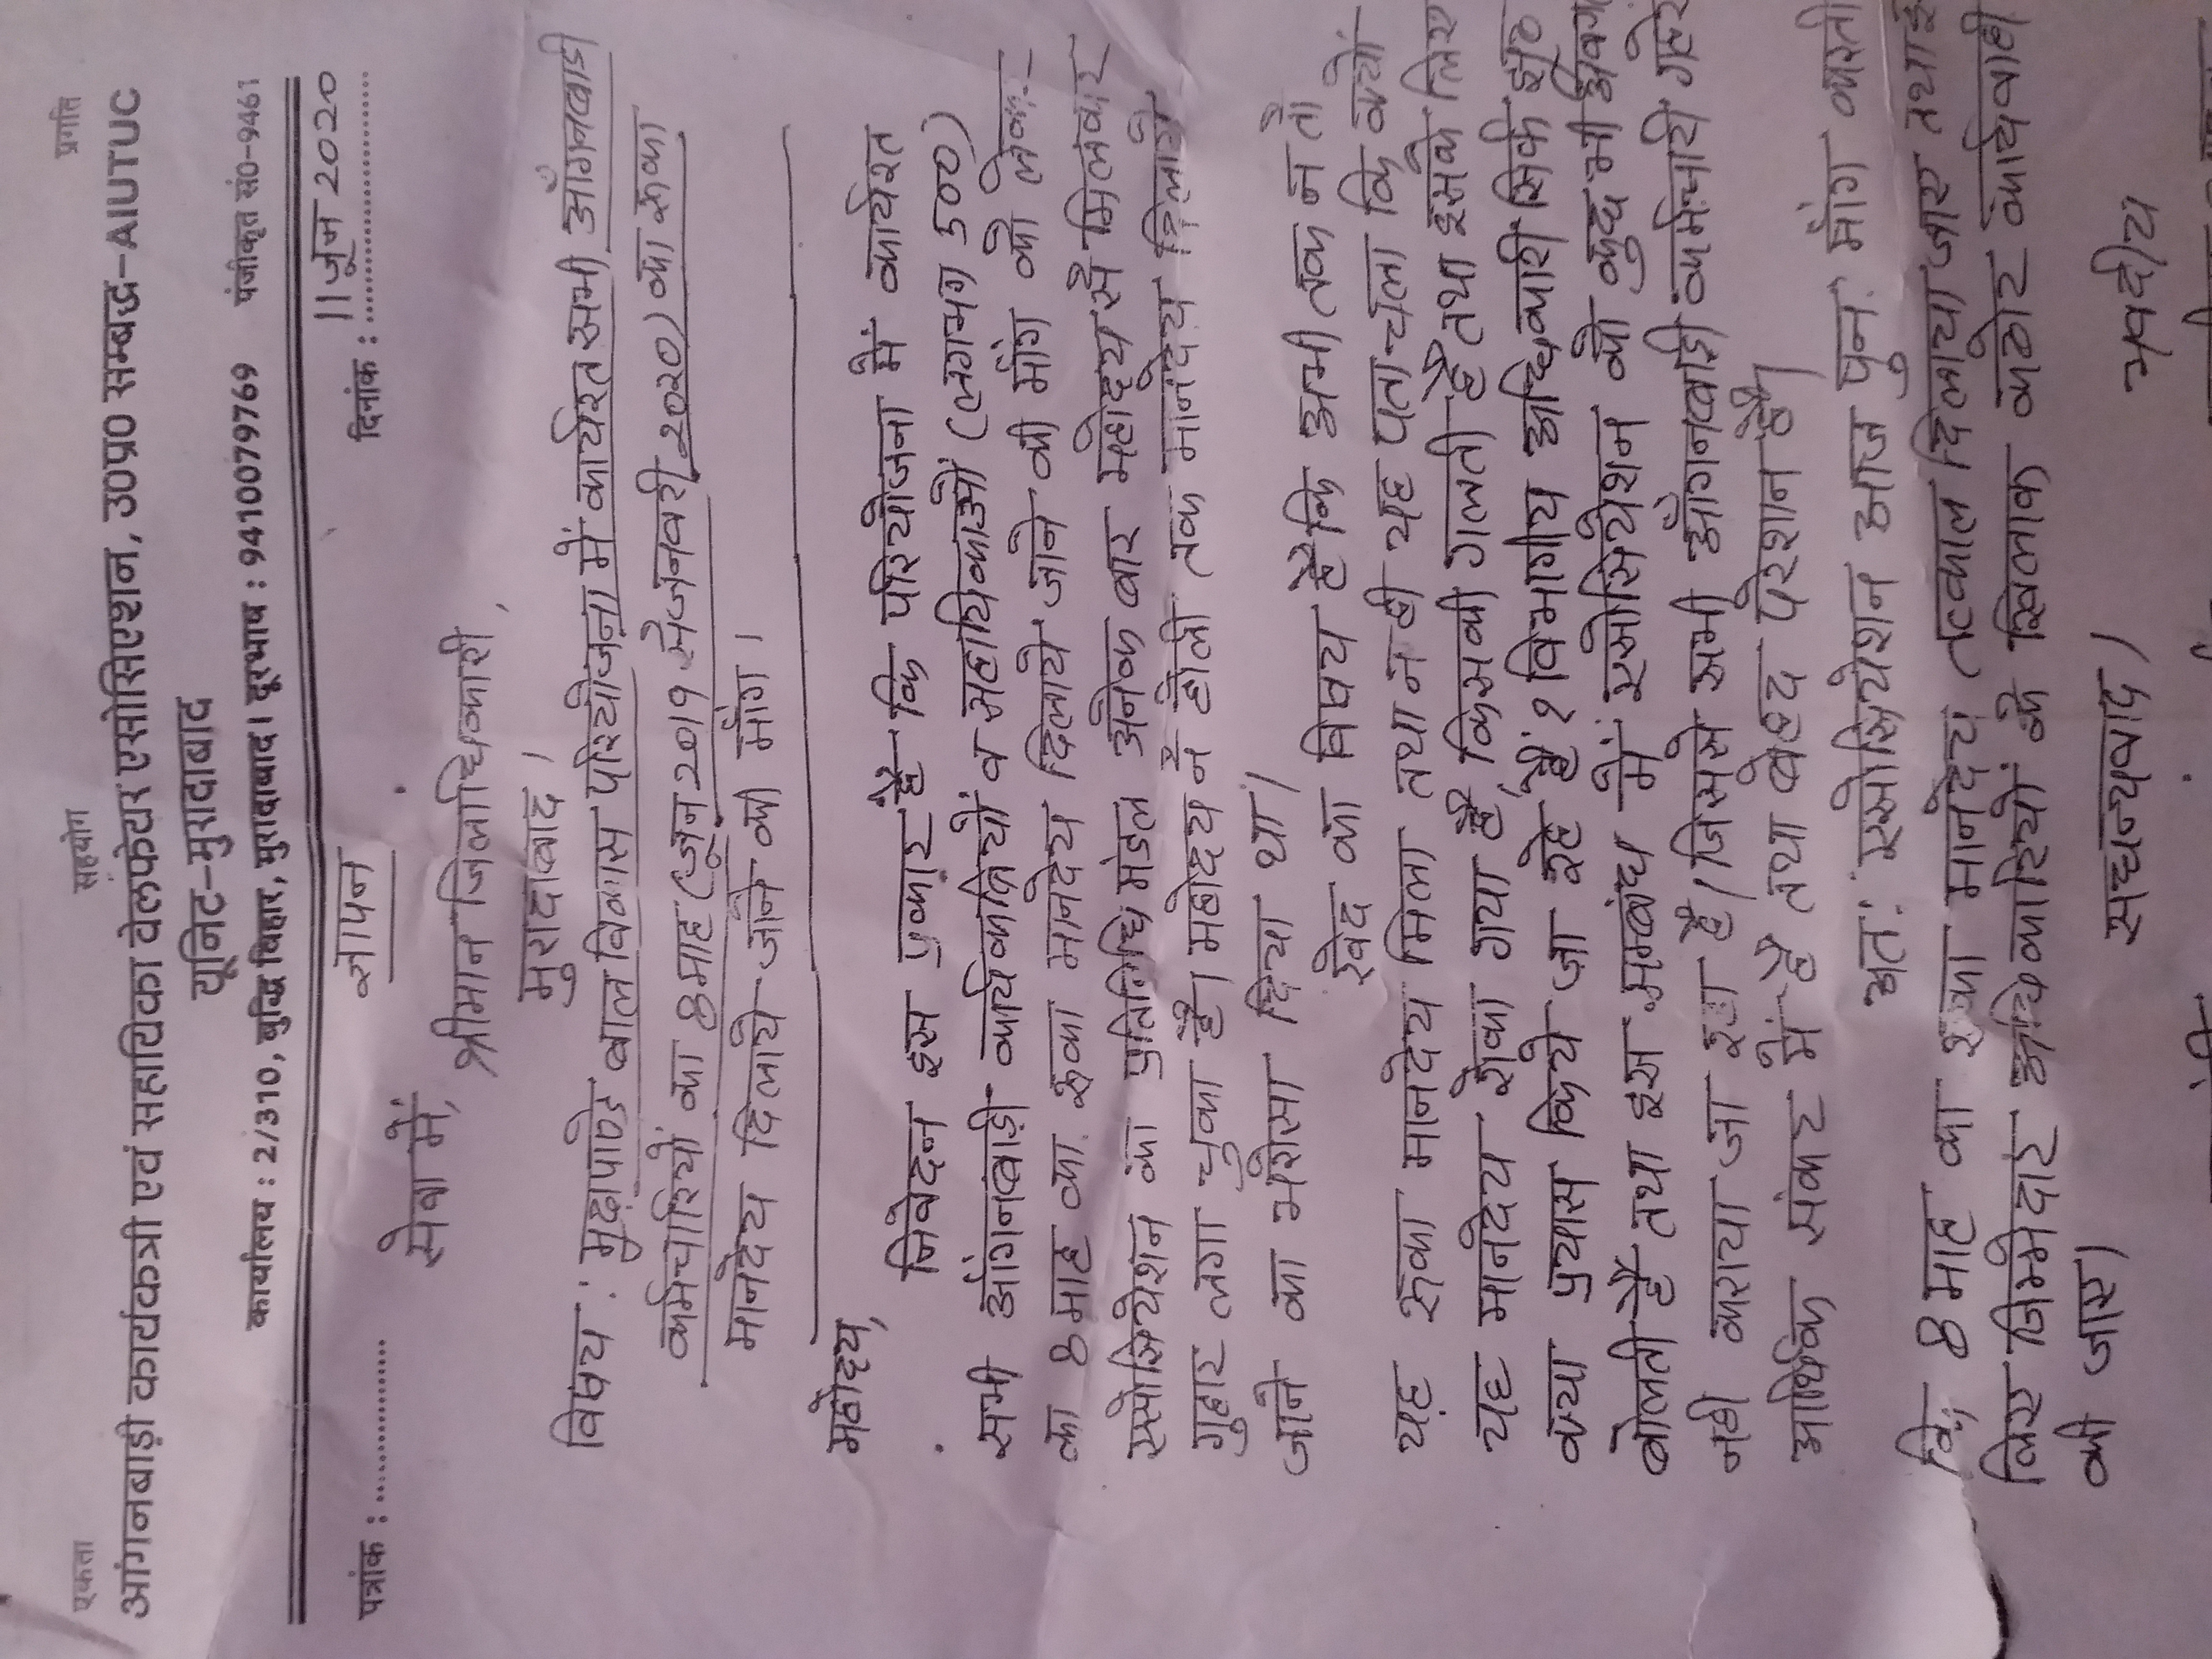 एकता सहयोग प्रगति
आंगनबाड़ी कार्यकत्री एवं सहायिका वेलफेयर एसोसिएशन, उ0प्र0 सम्बद्ध-AIUTUC
यूनिट-मुरादाबाद
कार्यालय : 2/310, बुद्धि विहार, मुरादाबाद। दूरभाष : 9410079769 पंजीकृत सं0-9461
पत्रांक : .................. ज्ञापन दिनांक : 11 जून 2020
सेवा में,
श्रीमान जिलाधिकारी,
मुरादाबाद।
विषय : मूढ़ापाण्डे बाल विकास परियोजना में कार्यरत सभी आँगनबाडी
कर्मचारियों का 8 माह (जून 2019 से जनवरी 2020) का रूका
मानदेय दिलाये जाने की माँग।
महोद्य,
निवेदन इस प्रकार है कि परियोजना में कार्यरत
सभी आँगनबाड़ी कार्यकत्रियों व सहायिकाओं (लगभग 500)
का 8 माह का रूका मानदेय दिलाये जाने की माँग को लेकर
एसोसियेशन का प्रतिनिधि मंडल अनेक बार महोद्य से मिलकर
गुहार लगा चुका है। महोदय ने होली तक मानदेय दिलाये
जाने का भरोसा दिया था।
खेद का विषय है कि अभी तक न तो
यह रूका मानदेय मिला तथा न ही यह पता चला कि क्यों
यह मानदेय रोका गया है, किसकी गलती है तथा इसके लिए
क्या प्रयास किये जा रहे हैं? विभागीय अधिकारी सिर्फ झूठ
बोलती है तथा इस सम्बंध में एसोसियेशन को कुछ भी अवग
नही कराया जा रहा है। जिससे सभी आँगनबाड़ी कर्मचारी गहरे
आर्थिक संकट में है तथा बेहद परेशान है।
अतः एसोसियेशन आज पुनः माँग करती
कि, 8 माह का रूका मानदेय तत्काल दिलाया जाए तथा इ
लिए जिम्मेदार अधिकारियों के खिलाफ कठोर कार्यवाही
की जाए।
सधन्यवाद। भवदीय